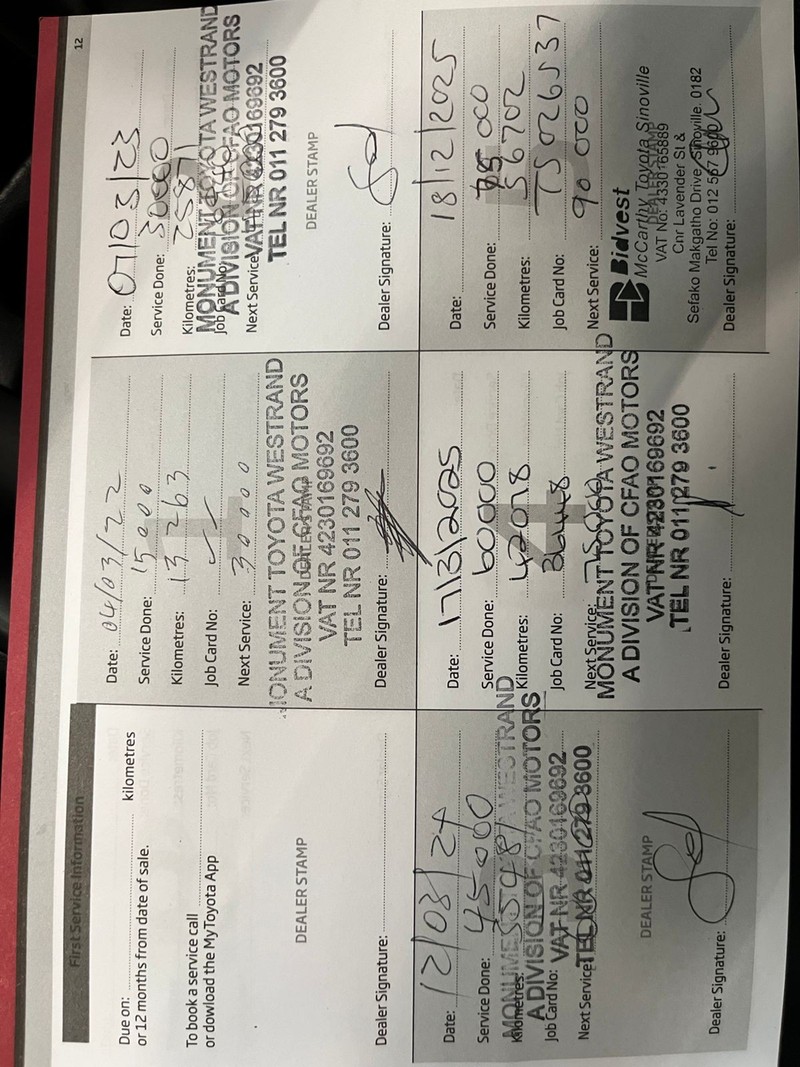 12
First Service Information
Due on: kilometres
or 12 months from date of sale.
To book a service call
or dowload the MyToyota App
DEALER STAMP
Dealer Signature:
Date: 04/03/22
Service Done: 15000
Kilometres: 13263
Job Card No:
Next Service: 30000
MONUMENT TOYOTA WESTRAND
A DIVISION OF CFAO MOTORS
VAT NR 4230169692
TEL NR 011 279 3600
Dealer Signature:
Date: 07/03/23
Service Done: 30000
Kilometres: 25871
MONUMENT TOYOTA WESTRAND
Job Card No:
A DIVISION OF CFAO MOTORS
Next Service:
VAT NR 4230169692
TEL NR 011 279 3600
DEALER STAMP
Dealer Signature:
Date: 12/03/24
Service Done: 45000
Kilometres:
MONUMENT TOYOTA WESTRAND
A DIVISION OF CFAO MOTORS
Job Card No:
VAT NR 4230169692
Next Service:
TEL NR 011 279 3600
DEALER STAMP
Dealer Signature:
4
Date: 17/3/2025
Service Done: 60000
Kilometres: 42078
Job Card No: 36448
Next Service: 75000
MONUMENT TOYOTA WESTRAND
A DIVISION OF CFAO MOTORS
VAT NR 4230169692
TEL NR 011 279 3600
Dealer Signature:
Date: 18/12/2025
Service Done: 75 000
Kilometres: 56702
Job Card No: TS026537
Next Service: 90 000
Bidvest
McCarthy Toyota Sinoville
DEALER STAMP
VAT No: 4330165889
Cnr Lavender St &
Sefako Makgatho Drive, Sinoville. 0182
Tel No: 012 567 9600
Dealer Signature: